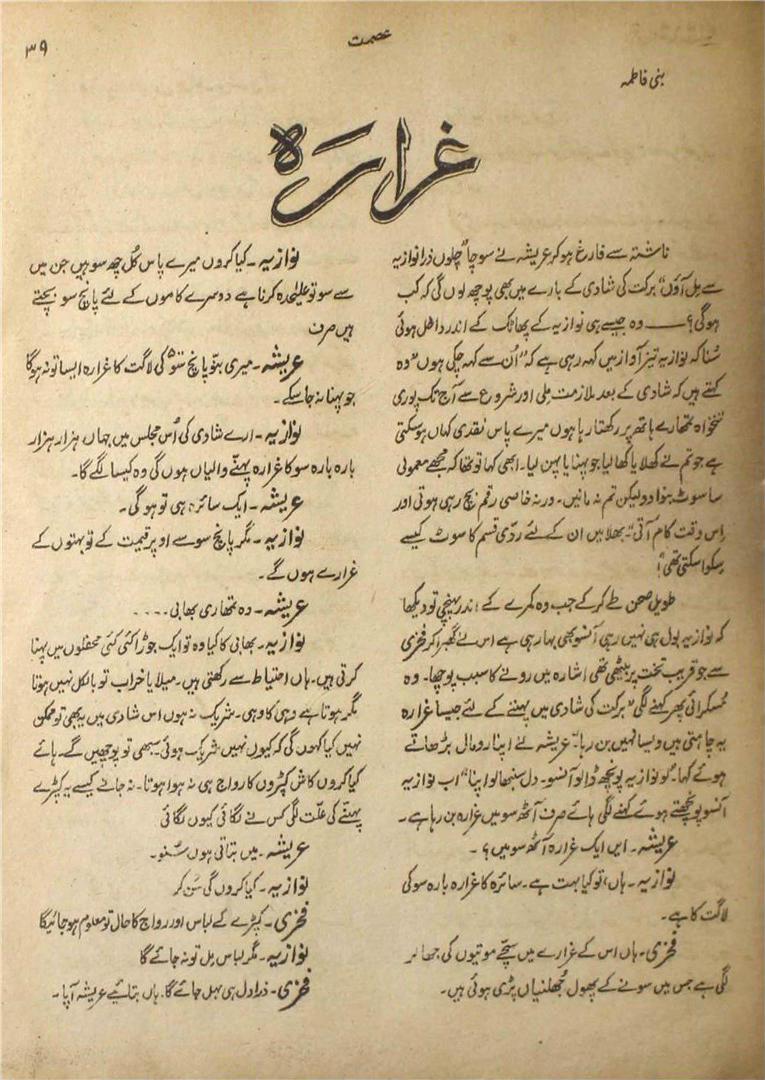 ۳۹
عصمت
بنی فاطمہ
غرارہ
ناشتہ سے فارغ ہو کر عریشہ نے سوچا "چلوں ذرا نوازیہ
سے مل آؤں" برکت کی شادی کے بارے میں بھی پوچھ لوں گی کہ کب
ہو گی؟ ـــــ وہ جیسے ہی نوازیہ کے پھاٹک کے اندر داخل ہوئی
سُنا کہ نوازیہ تیز آواز میں کہہ رہی ہے کہ "اُن سے کہہ چکی ہوں" وہ
کہتے ہیں کہ شادی کے بعد ملازمت ملی اور شروع سے آج تک پوری
تنخواہ تمھارے ہاتھ پر رکھتا رہا ہوں میرے پاس نقدی کہاں ہو سکتی
ہے جو تم نے کھلایا کھا لیا جو پہنایا پہن لیا۔ ابھی کہا تو تھا کہ مجھے معمولی
سا سوٹ بنوا دو لیکن تم نہ مانیں۔ ورنہ خاصی رقم بچ رہی ہوتی اور
اِس وقت کام آتی" بھلا میں ان کے لئے ردّی قسم کا سوٹ کیسے
سِلوا سکتی تھی"!
طویل صحن طے کر کے جب وہ کمرے کے اندر پہنچی تو دیکھا
کہ نوازیہ بول ہی نہیں رہی آنسو بھی بہا رہی ہے اس نے گھبرا کر فخری
سے جو قریب تخت پر بیٹھی تھی اشارہ میں رونے کا سبب پوچھا۔ وہ
مُسکرائی پھر کہنے لگی "برکت کی شادی میں پہننے کے لئے جیسا غرارہ
یہ چاہتی ہیں ویسا نہیں بن رہا" عریشہ نے اپنا رومال بڑھاتے
ہوئے کہا۔ "لو نوازیہ پونچھ ڈالو آنسو۔ دل سنبھالو اپنا" اب نوازیہ
آنسو پونچھتے ہوئے کہنے لگی ہائے صرف آٹھ سو میں غرارہ بن رہا ہے۔
عریشہ۔ ایں ایک غرارہ آٹھ سو میں؟۔
نوازیہ۔ ہاں، تو کیا بہت ہے۔ سائرہ کا غرارہ بارہ سو کی
لاگت کا ہے۔
فخری۔ ہاں اس کے غرارے میں سچّے موتیوں کی جھالر
لگی ہے جس میں سونے کے پھول جُھلنیاں پڑی ہوئی ہیں۔
نوازیہ۔ کیا کروں میرے پاس کُل چھ سو ہیں جن میں
سے سو تو علیٰحدہ کرنا ہے دوسرے کاموں کے لئے پانچ سو بچتے
ہیں صرف
عریشہ۔ میری بنّو پانچ سو کی لاگت کا غرارہ ایسا تو نہ ہو گا
جو پہنا نہ جا سکے۔
نوازیہ۔ ارے شادی کی اُس مجلس میں جہاں ہزار ہزار
بارہ بارہ سو کا غرارہ پہننے والیاں ہوں گی وہ کیسا لگے گا۔
عریشہ۔ ایک سائرہ ہی تو ہو گی۔
نوازیہ۔ مگر پانچ سو سے اوپر قیمت کے تو بہتوں کے
غرارے ہوں گے۔
عریشہ۔ وہ تمھاری بھابی ....
نوازیہ۔ بھابی کا کیا وہ تو ایک جوڑا کئی کئی محفلوں میں پہنا
کرتی ہیں۔ ہاں احتیاط سے رکھتی ہیں۔ میلا یا خراب تو بالکل نہیں ہوتا
مگر ہوتا ہے وہی کا وہی۔ شریک نہ ہوں اس شادی میں یہ بھی تو ممکن
نہیں کیا کہوں گی کہ کیوں نہیں شریک ہوئی سبھی تو پوچھیں گے۔ ہائے
کیا کروں کاش کپڑوں کا رواج ہی نہ ہوا ہوتا۔ نہ جانے کیسے یہ کپڑے
پہننے کی علّت لگی کس نے لگائی کیوں لگائی
عریشہ۔ میں بتاتی ہوں سُنو۔
نوازیہ۔ کیا کروں گی سُن کر
فخری۔ کپڑے کے لباس اور رواج کا حال تو معلوم ہو جائیگا
نوازیہ۔ مگر لباس مل تو نہ جائے گا
فخری۔ ذرا دل ہی بہل جائے گا۔ ہاں بتائیے عریشہ آپا۔